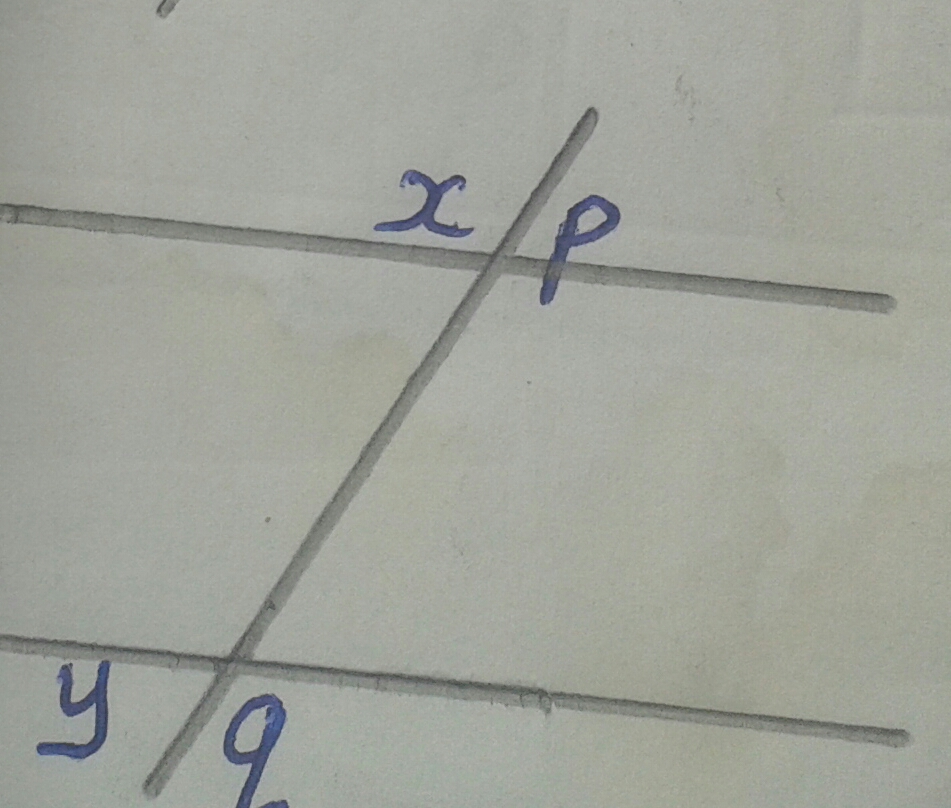 x p
y q